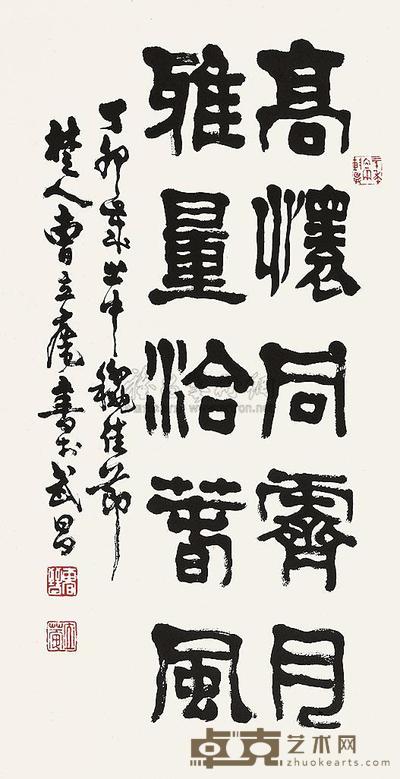 高懷同霽月
雅量洽春風
丁卯年之中秋佳節
楚人曹立庵書於武昌
卓克艺术网
www.zhuokearts.com